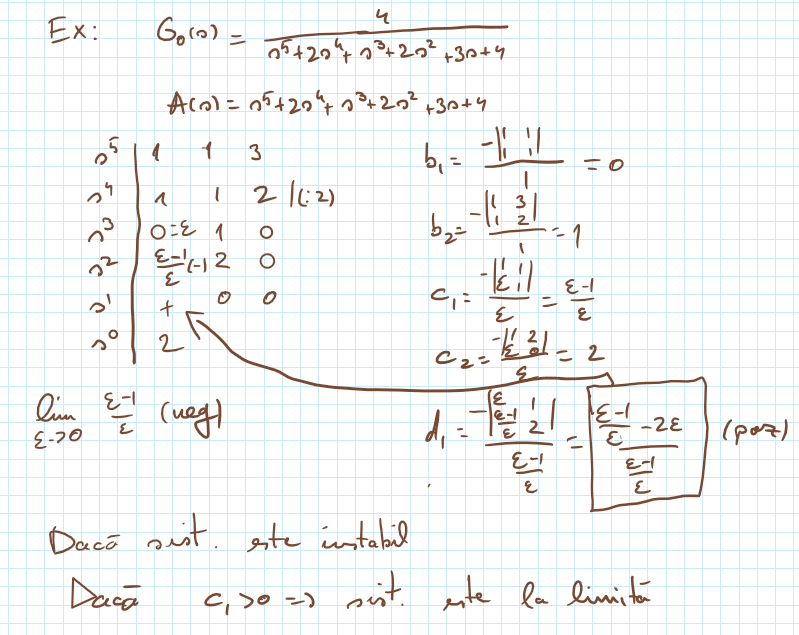 Ex: G₀(s) = 4 / (s⁵+2s⁴+s³+2s²+3s+4)
A(s) = s⁵+2s⁴+s³+2s²+3s+4
s⁵ | 1 1 3
s⁴ | 1 1 2 |(:2)
s³ | 0=ε 1 0
s² | (ε-1)/ε (-) 2 0
s¹ | + 0 0
s⁰ | 2
b₁ = -|1 1; 1 1| / 1 = 0
b₂ = -|1 3; 1 2| / 1 = 1
c₁ = -|1 1; ε 1| / ε = (ε-1)/ε
c₂ = -|1 2; ε 0| / ε = 2
lim ε->0 (ε-1)/ε (neg)
d₁ = -|ε 1; (ε-1)/ε 2| / ((ε-1)/ε) = ((ε-1)/ε - 2ε) / ((ε-1)/ε) (poz)
Dacă sist. este instabil
Dacă c₁>0 => sist. este la limită